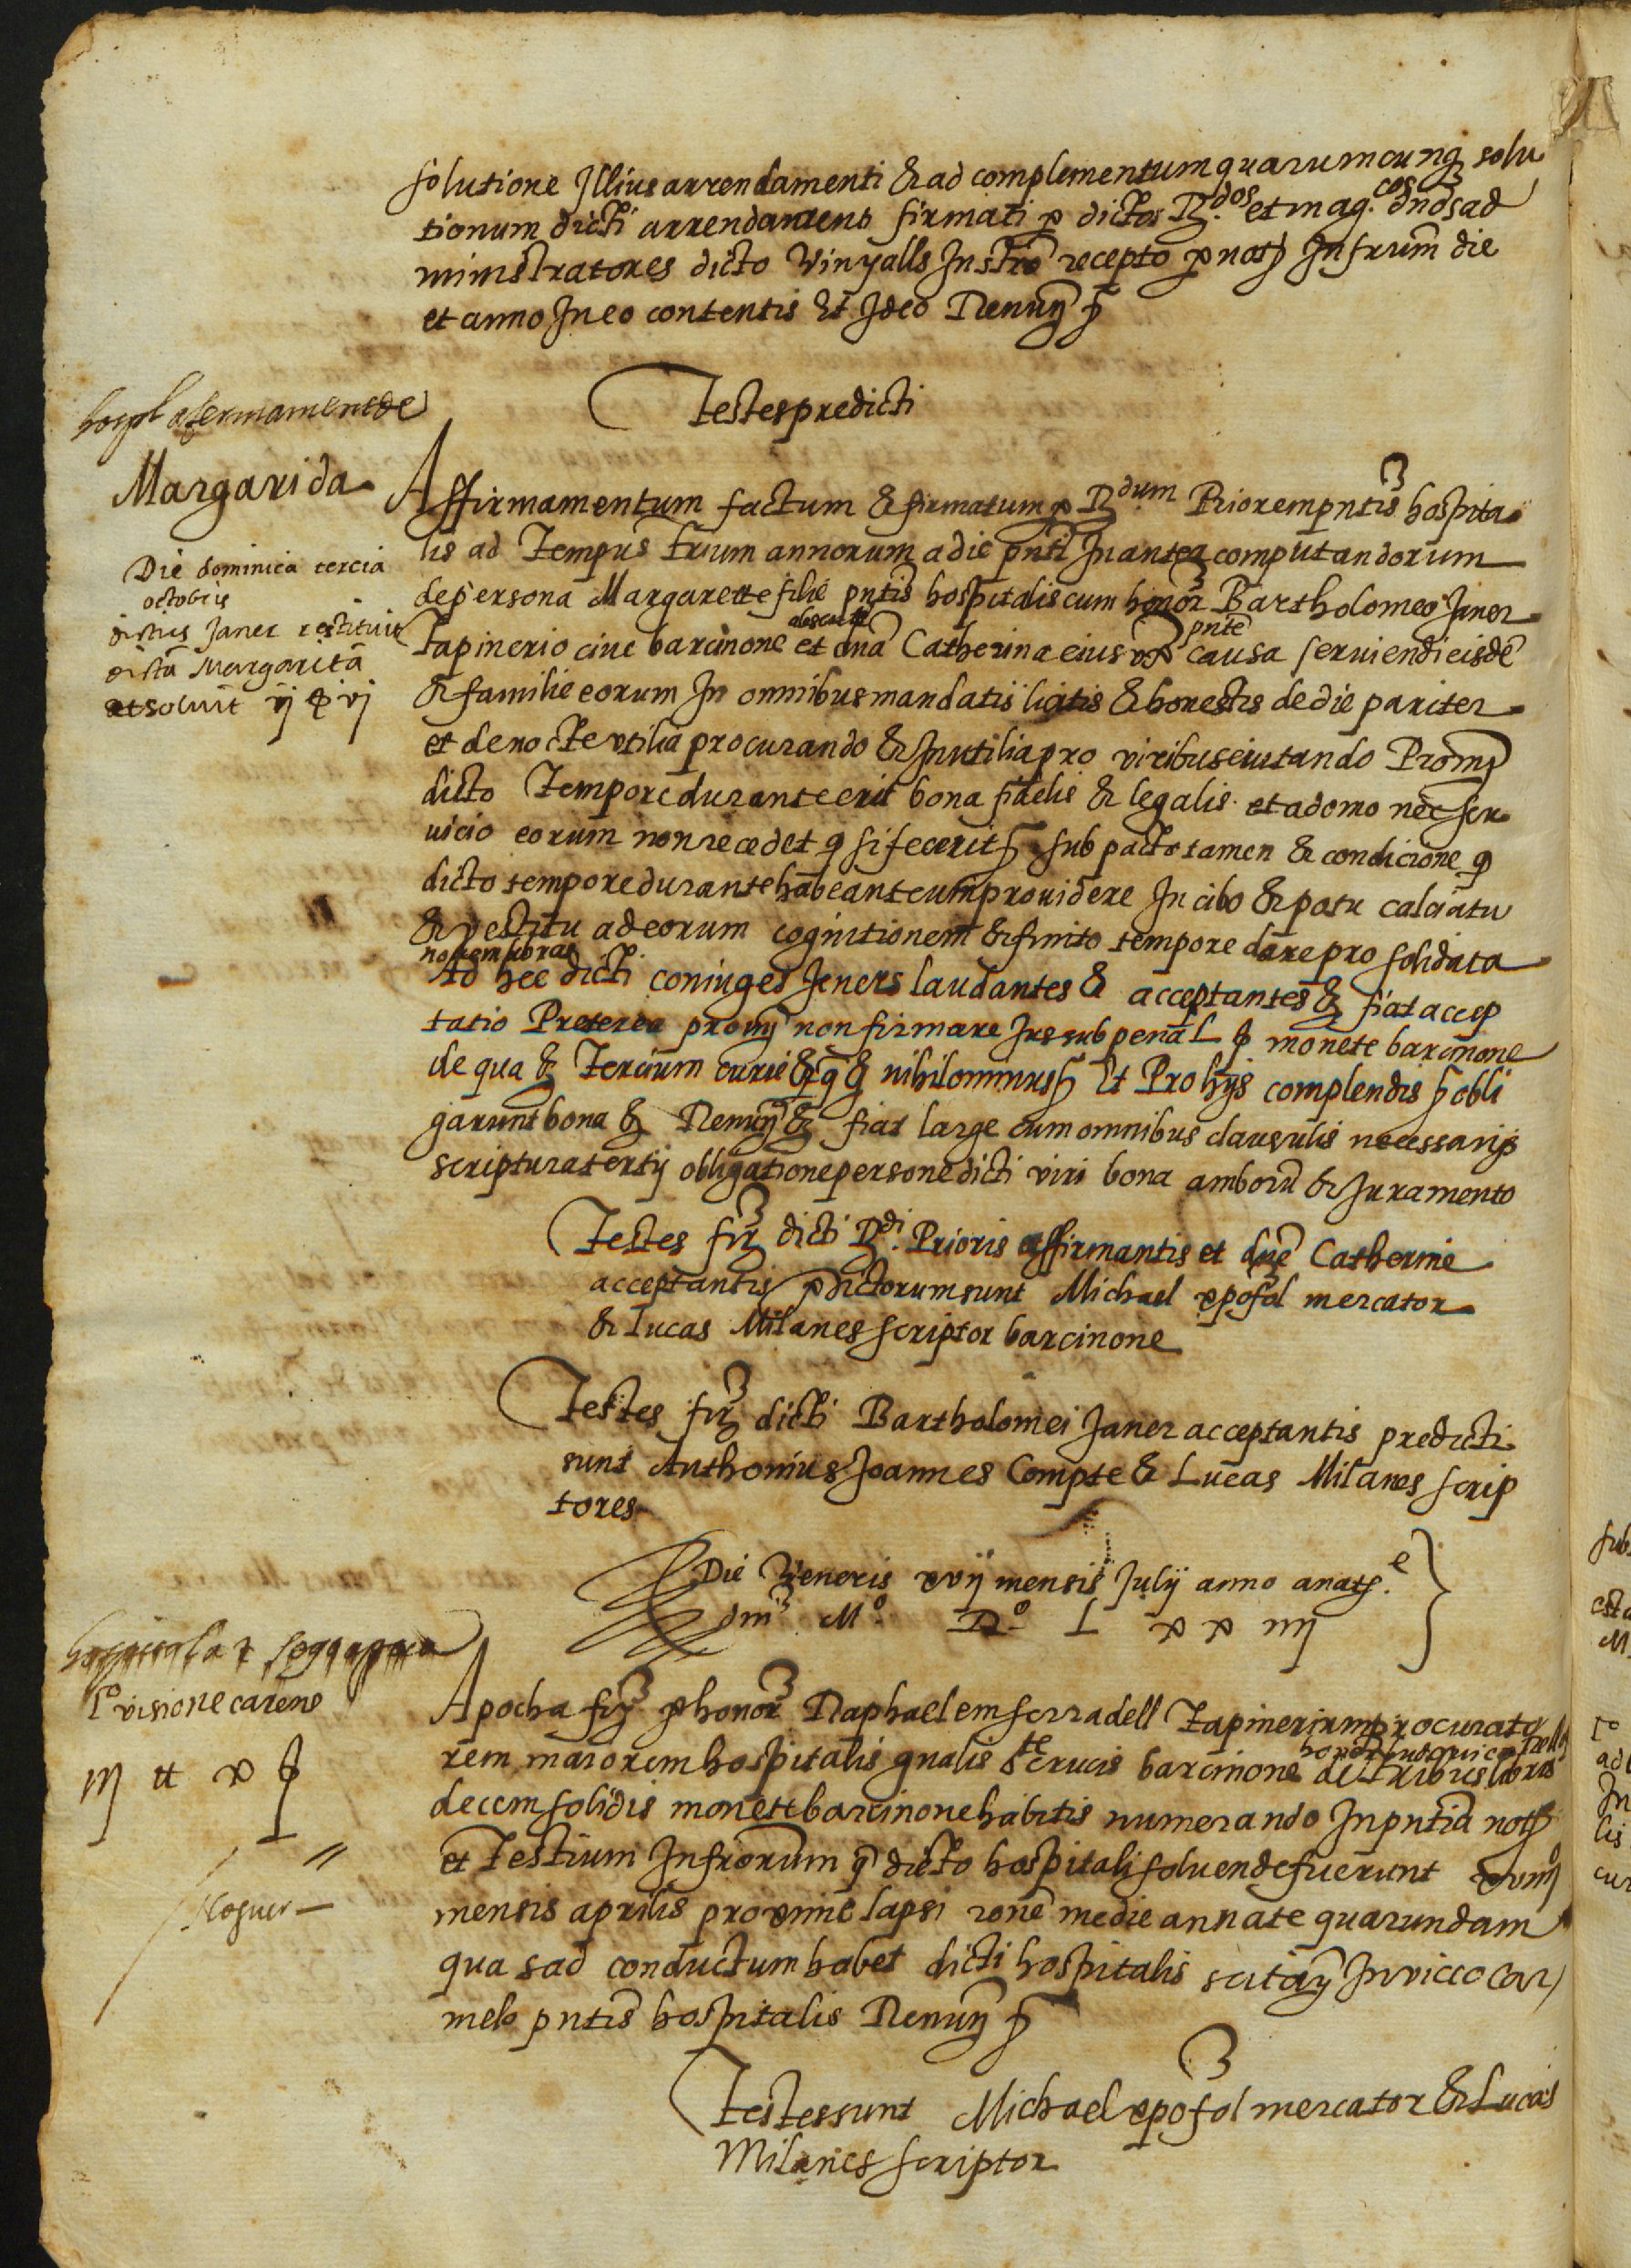 solutione Illius arrendamenti & ad complementum quarumcunq solu
tionum dicti arrendament firmati p dictos R.dos et mag.cos dnos ad
ministratores dicto Vinyalls Instro recepto p not Infrum die
et anno In eo contentis Et Ideo Renuny
Testes predicti
hospl afermament de
Margarida
Die dominica tercia
octobris
dictus Janer restituit
dictã Margaritã
et soluit vj vj
Affirmamentum factum & firmatum p R.dum Priorem pntis hospita
lis ad Tempus trium annorum a die pnti In antea computandorum
de persona Margarette filie pntis hospitalis cum honor Bartholomeo Janer
absente
pnte
Tapinerio ciue barcinone et dna Catherina eius vx causa seruiendi eisdẽ
& familie eorum In omnibus mandatis licitis & honestis de die pariter
et de nocte vtilia procurando & Inutilia pro viribus euitando Prom
dicto Tempore durante erit bona fidelis & legalis et a domo nec ser
uicio eorum non recedet q si fecerit sub pacto tamen & condicione q
dicto tempore durante habeant eum prouidere In cibo & potu calciatu
& vestitu ad eorum cognitionem & finito tempore dare pro solidata
nouem libras
Ad hec dicti coniuges Jeners laudantes & acceptantes & fiat accep
tatio Preterea prom non firmare Jus sub pena L monete barcinone
de qua & Tercium curie & q & nihilominus Et Pro hijs complendis obli
garunt bona & Renuny & fiat large cum omnibus clausulis necessarijs
scriptura tertij obligatione persone dicti viri bona amborũ & Juramento
Testes fir dicti R.di Prioris affirmantis et dne Catherine
acceptantis pdictorum sunt Michael xpofol mercator
& Lucas Milanes scriptor barcinone
Testes fir dicti Bartholomei Janer acceptantis predicti
sunt Anthonius Joannes Compte & Lucas Milanes scrip
tores
Die Veneris xvij mensis Julij anno a nat.e
dni Mº Dº L x x iiij
pº visione carene
iij tt x
lloguer
Apocha fir p honor Raphaelem serradell Tapinerium procurato
rem maiorem hospitalis gnalis ste crucis barcinone de tribus libris
decem solidis monete barcinone habitis numerando In pntia not
et Testium Infrorum q dicto hospitali soluende fuerunt xviiijº
mensis aprilis proxime lapsi rone medie annate quarundam
quas ad conductum habet dicti hospitalis In vicco Car
melo pntis hospitalis Renuny
Testes sunt Michael xpofol mercator & Lucas
Milanes scriptor